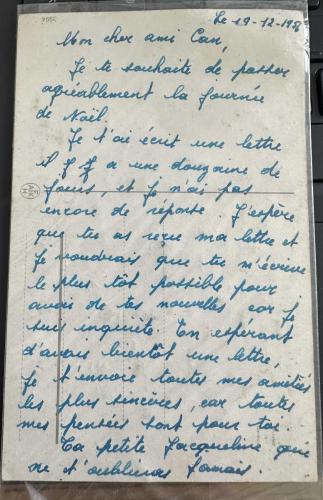 Le 19-12-198
Mon cher ami Can,
Je te souhaite de passer
agréablement la journée
de Noël.
Je t'ai écrit une lettre
il y a une douzaine de
jours, et je n'ai pas
encore de réponse. J'espère
que tu as reçu ma lettre et
je voudrais que tu m'écrives
le plus tôt possible pour
avoir de tes nouvelles car je
suis inquiète. En espérant
d'avoir bientôt une lettre,
je t'envoie toutes mes amitiés
les plus sincères, car toutes
mes pensées sont pour toi.
Ta petite Jacqueline qui
ne t'oubliera jamais.